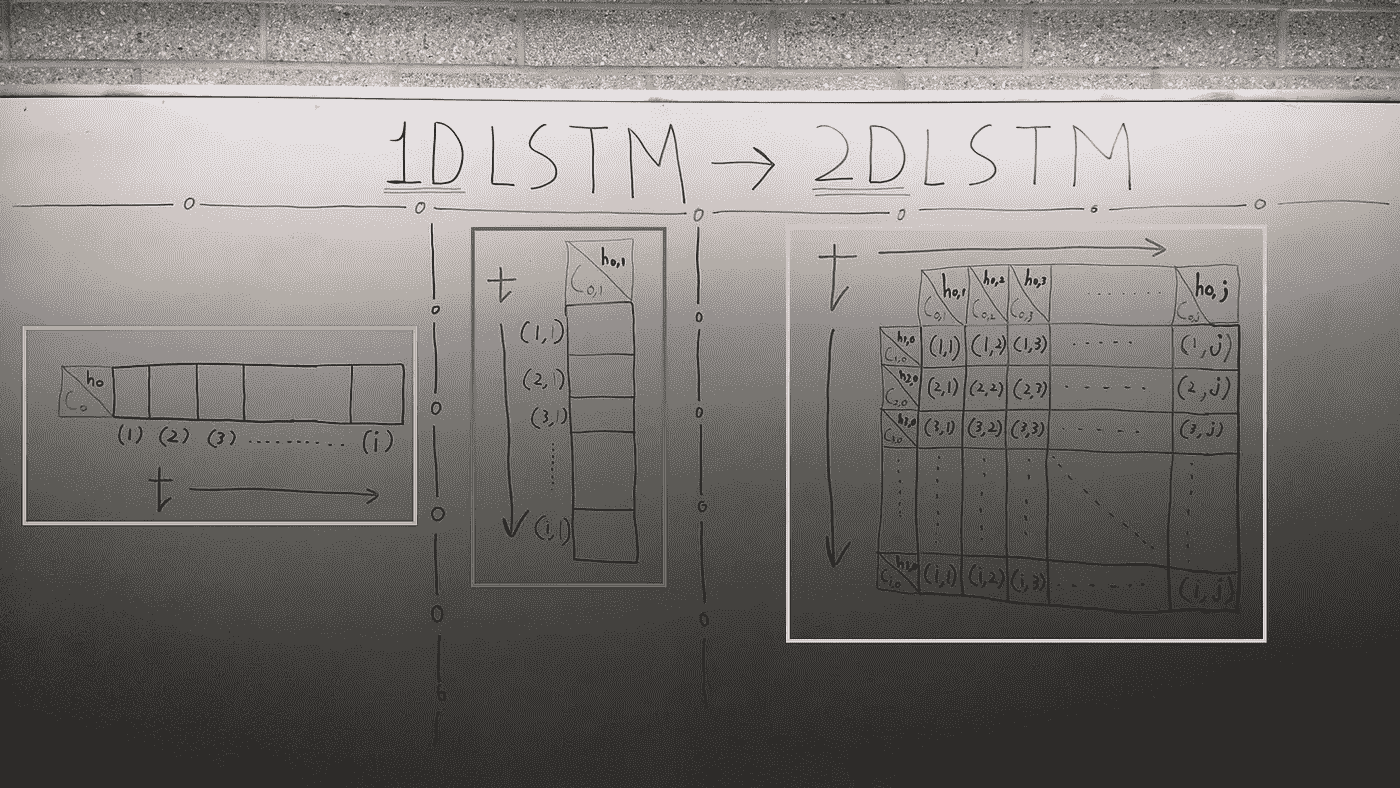 1D LSTM → 2D LSTM
h₀ C₀
(1) (2) (3) ......... (i)
t →
t
h₀,₁ C₀,₁
(1,1)
(2,1)
(3,1)
(i,1)
t →
h₀,₁ h₀,₂ h₀,₃ ........ h₀,j
C₀,₁ C₀,₂ C₀,₃ C₀,j
h₁,₀ C₁,₀ (1,1) (1,2) (1,3) ..... (1,j)
h₂,₀ C₂,₀ (2,1) (2,2) (2,3) ...... (2,j)
h₃,₀ C₃,₀ (3,1) (3,2) (3,3) ..... (3,j)
(i,1) (i,2) (i,3) ...... (i,j)